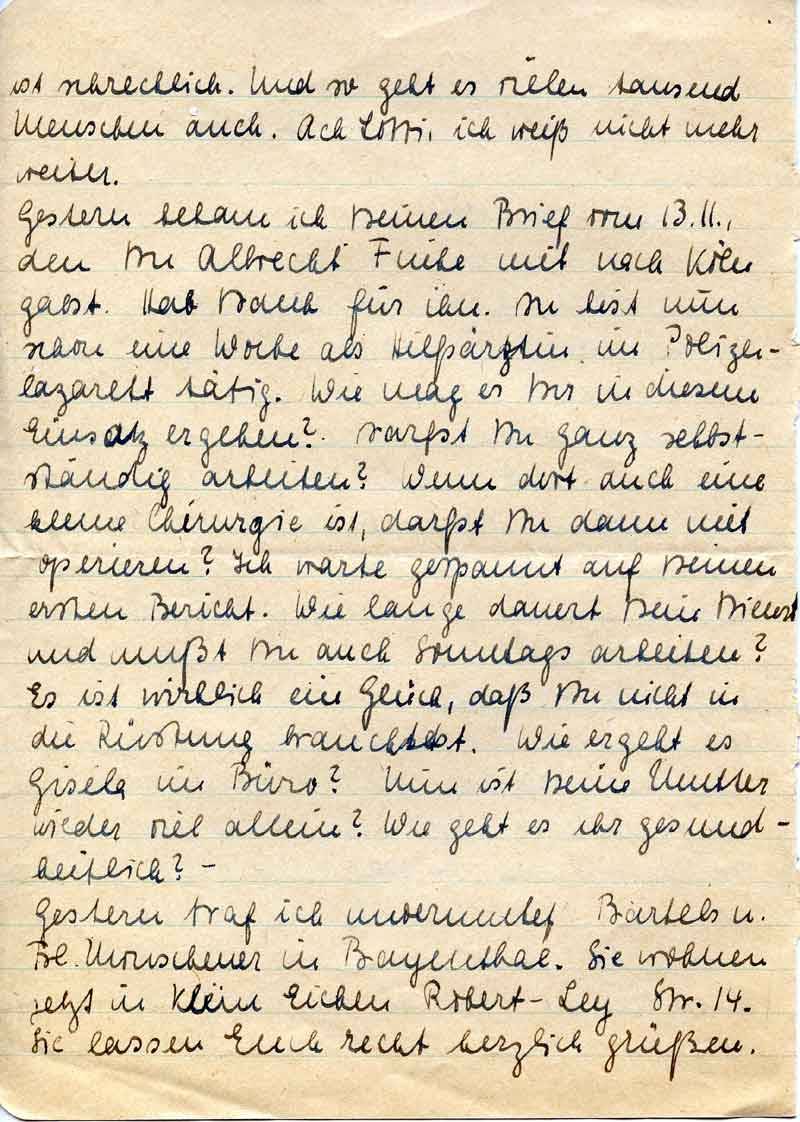 ist schrecklich. Und so geht es vielen tausend
Menschen auch. Ach Lotti, ich weiß nicht mehr
weiter.
Gestern bekam ich Deinen Brief vom 13.11.,
den Du Albrecht mit nach Köln
gabst. Hab Dank für ihn. Du bist nun
schon eine Woche als Hilfsärztin im Polizei-
lazarett tätig. Wie mag es Dir in diesem
Einsatz ergehen? Darfst Du ganz selbst-
ständig arbeiten? Wenn dort auch eine
kleine Chirurgie ist, darfst Du dann mit
operieren? Ich warte gespannt auf Deinen
ersten Bericht. Wie lange dauert Dein Dienst
und mußt Du auch Sonntags arbeiten?
Es ist wirklich ein Glück, daß Du nicht in
die Rüstung brauchtest. Wie ergeht es
Gisela im Büro? Nun ist Deine Mutter
wieder viel allein? Wie geht es ihr gesund-
heitlich? –
Gestern traf ich unvermutet Bartels u.
Frl. in Bayenthal. Sie wohnen
jetzt in Klein Eichen Robert-Ley Str. 14.
Sie lassen Euch recht herzlich grüßen.